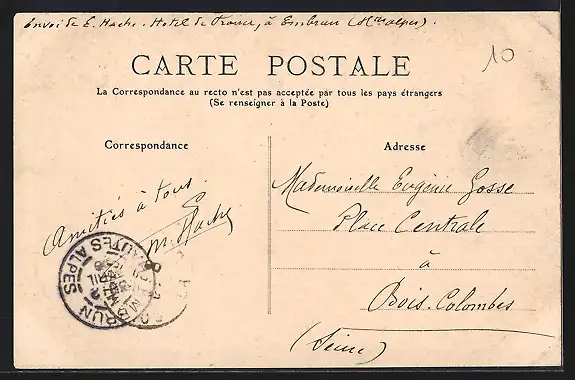 Envoi de E. Hache. Hotel de France, à Embrun (Htes Alpes).
10
CARTE POSTALE
La Correspondance au recto n'est pas acceptée par tous les pays étrangers
(Se renseigner à la Poste)
Correspondance
Adresse
Amitiés à tous.
E. Hache
Mademoiselle Eugénie Gosse
Place Centrale
à
Bois-Colombes
(Seine)
HAUTES ALPES